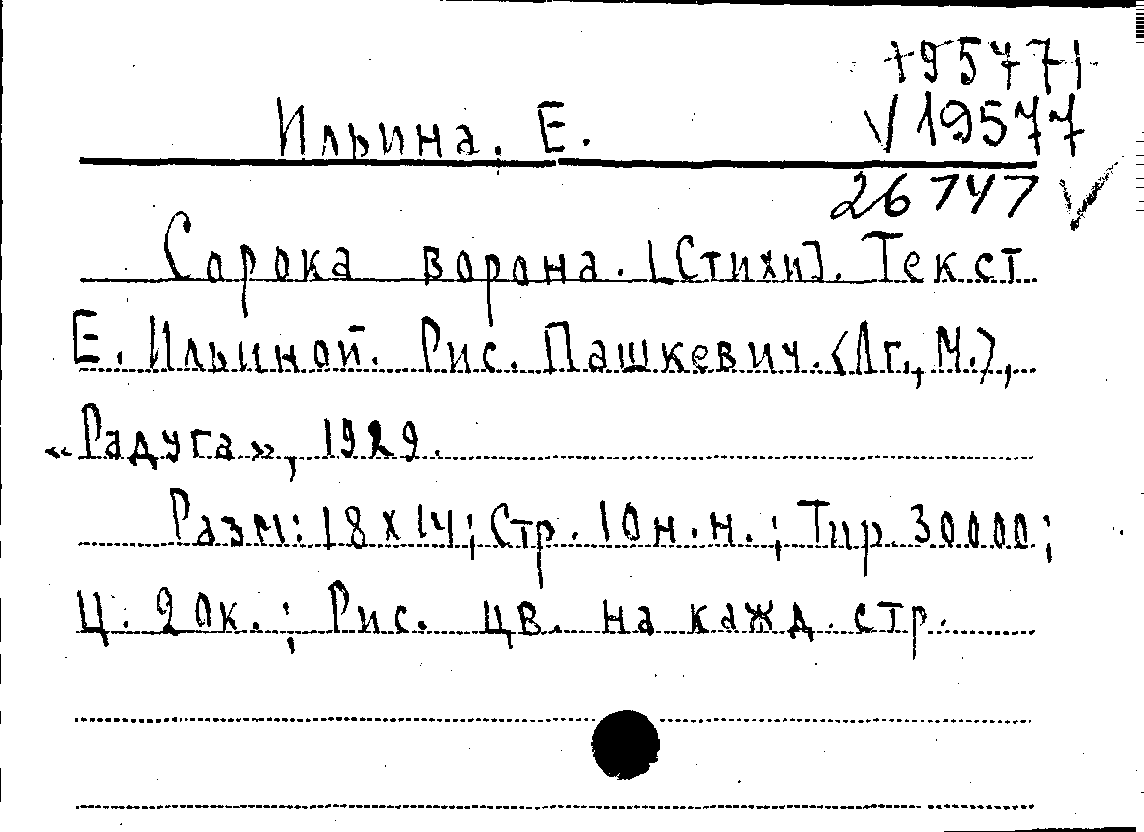 19577
Ильина. Е. √19577
26747 √
Сорока ворона. [Стихи]. Текст
Е. Ильиной. Рис. Пашкевич. <Лг., М.>,
«Радуга», 1929.
Разм: 18х14; Стр. 10 н.н.; Тир. 30000;
Ц. 20к.; Рис. цв. на кажд. стр.